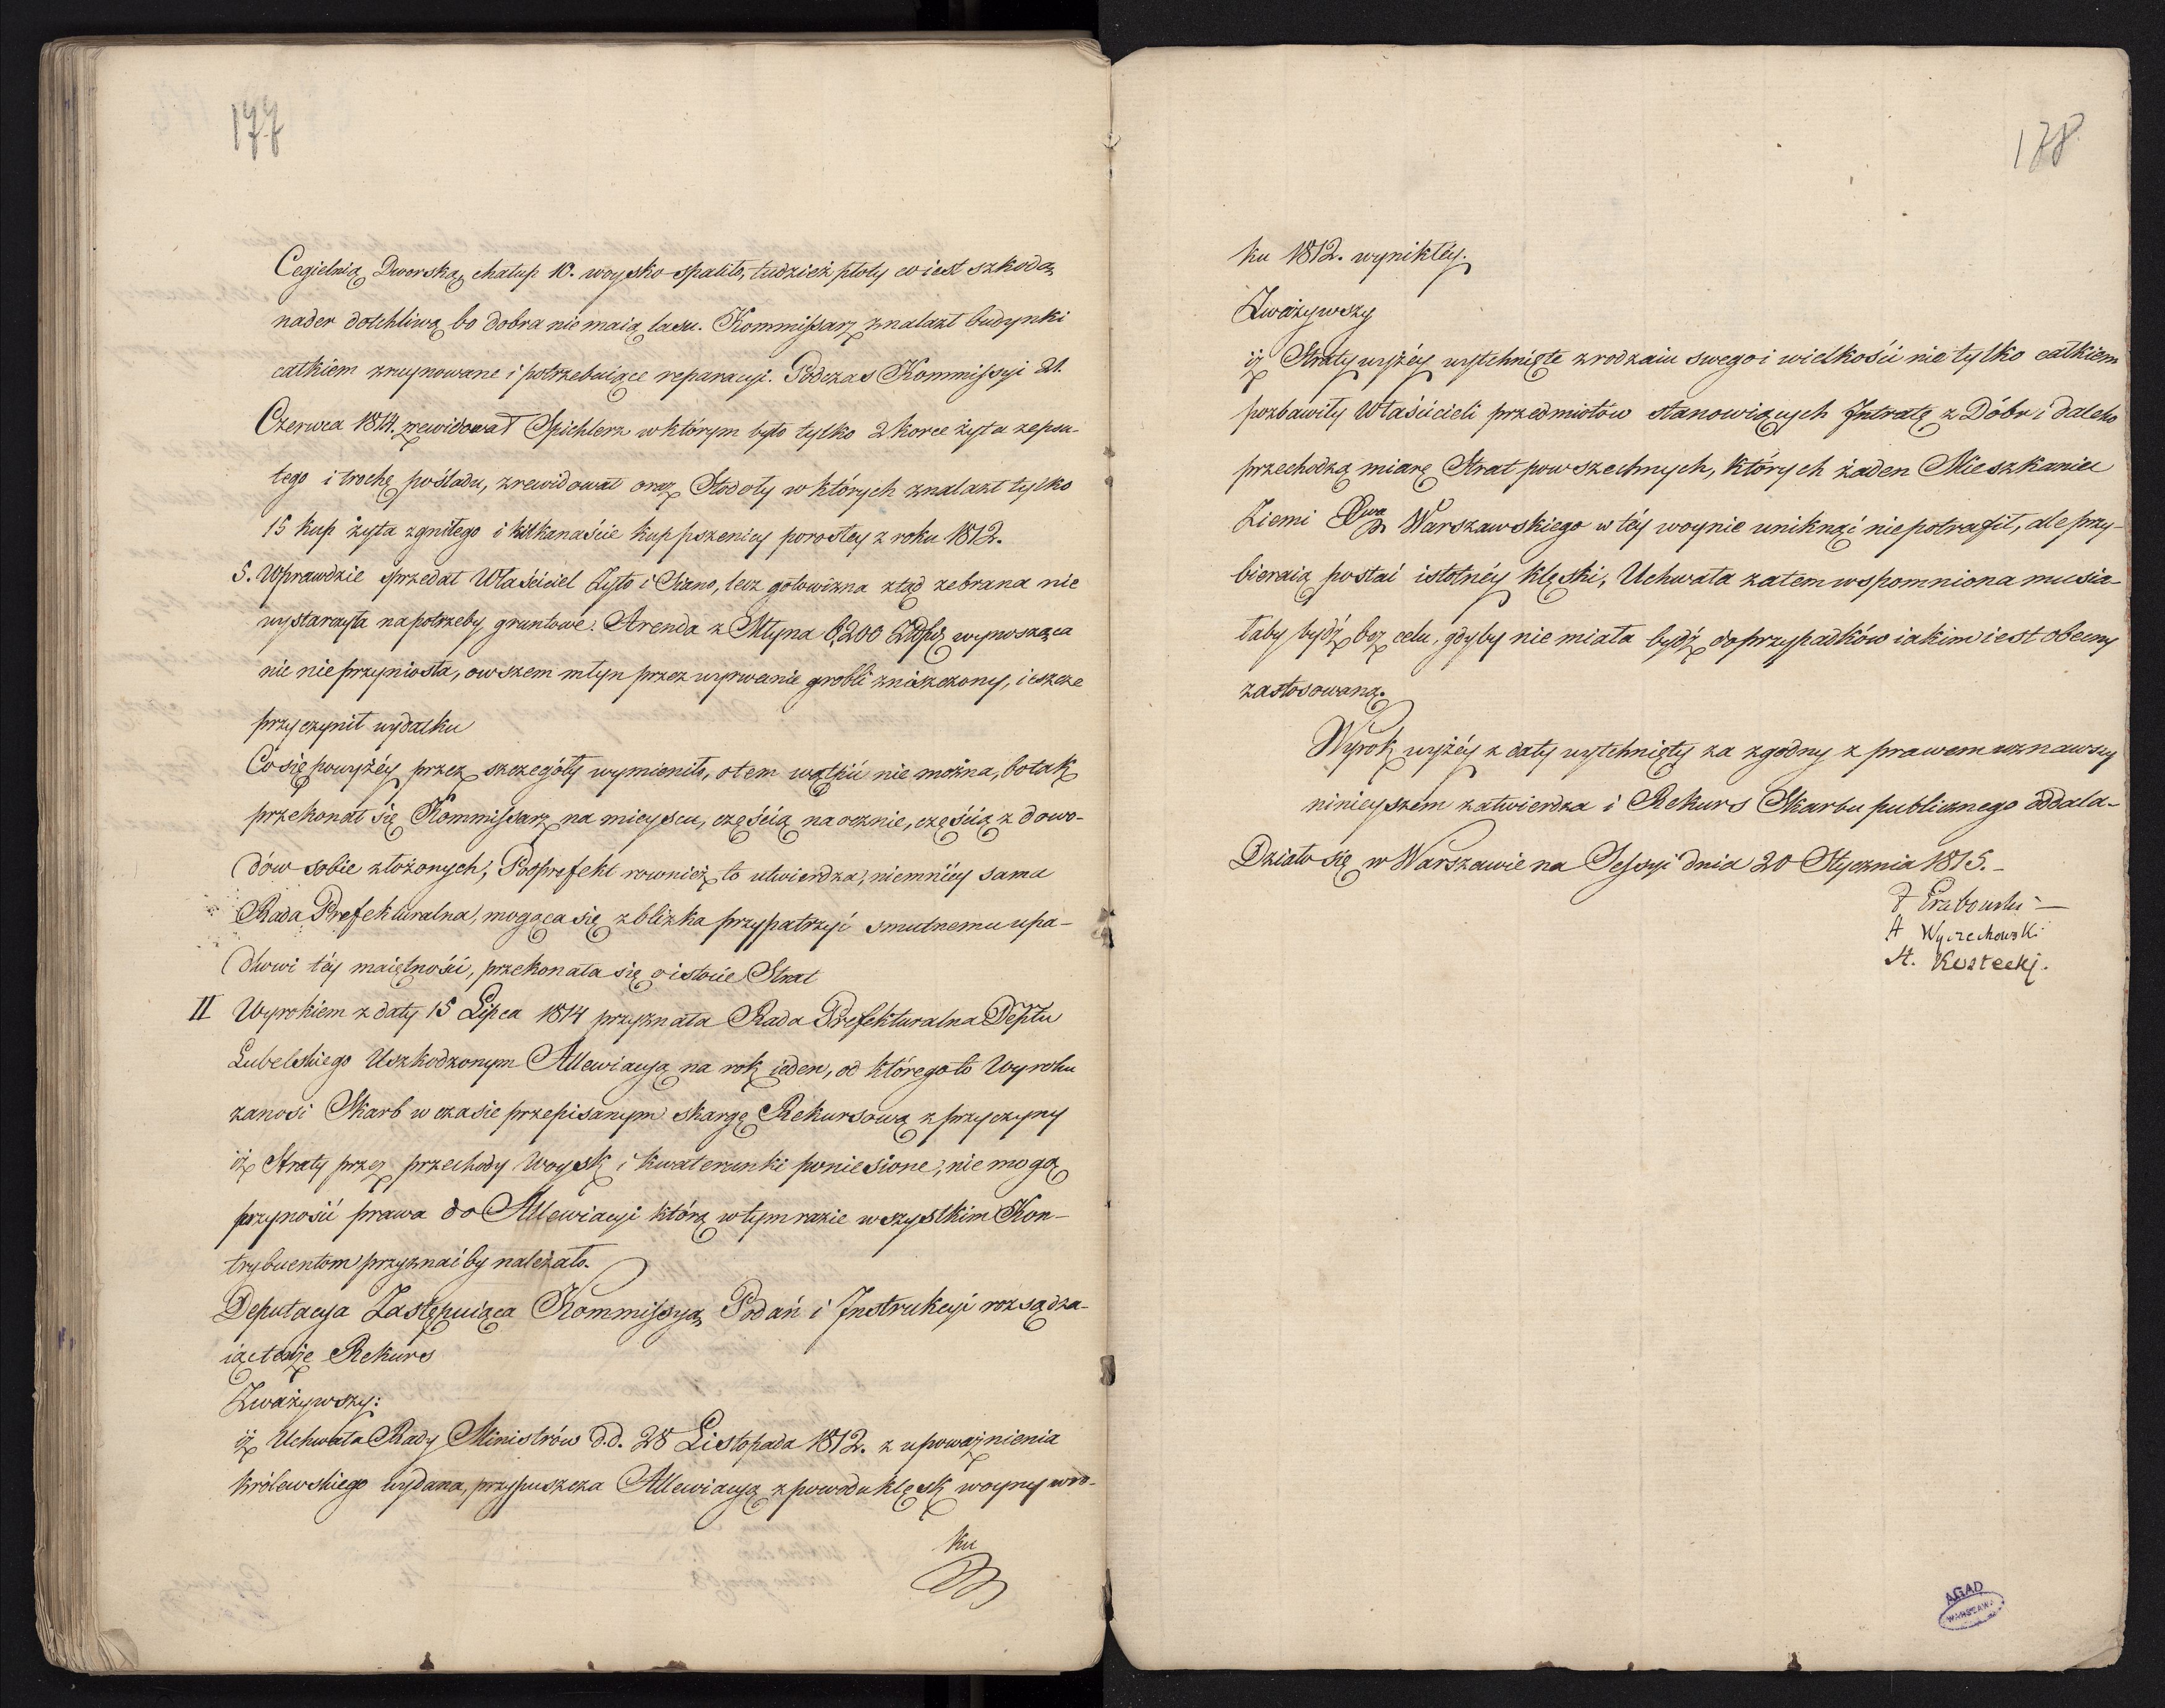 177
Cegielnią Dworską, chałup 10. woysko spaliło, tudzież płoty co iest szkodą
nader dotkliwą bo dobra nie maią lasu. Kommissarz znalazł budynki
całkiem zruynowane i potrzebuiące reparacyi. Podczas Kommissyi 21.
Czerwca 1814. zrewidował Spichlerz w którym było tylko 2 korce żyta zepsu-
tego i trochę pośladu, zrewidował oraz Stodoły w których znalazł tylko
15 kup żyta zgniłego i kilkanaście kup pszenicy porosłey z roku 1812.
5. Wprawdzie sprzedał Właściciel Żyto i Siano, lecz gotowizna ztąd zebrana nie
wystarczyła na potrzeby gruntowe. Arenda z Młyna 6,200 Złp. wynosząca
nic nie przyniosła, owszem młyn przez wyrwanie grobli zniszczony, ieszcze
przyczynił wydatku
Co się powyżéy przez szczegóły wymieniło, o tem wątpić nie można, bo tak
przekonał się Kommissarz na mieyscu, częścią naocznie, częścią z dowo-
dów sobie złożonych, Podprefekt rownież to utwierdza, niemniéy sama
Rada Prefekturalna, mogąca się zblizka przypatrzyć smutnemu upa-
dkowi téy maiętności, przekonała się o istocie Strat
II Wyrokiem z daty 15 Lipca 1814 przyznała Rada Prefekturalna Deptu
Lubelskiego Uszkodzonym Allewiacyą na rok ieden, od którego to Wyroku
zanosi Skarb w czasie przepisanym skargę Rekursową z przyczyny
iż Straty przez przechody Woysk i kwaterunki poniesione, nie mogą
przynosić prawa do Allewiacyi którą w tym razie wszystkim Kon-
trybuentom przyznać by należało.
Deputacya Zastępuiąca Kommissyą Podań i Instrukcyi rozsądza-
iąc tenże Rekurs
Zważywszy:
iż Uchwała Rady Ministrów d.d. 28 Listopada 1812. z upoważnienia
Królewskiego wydana, przypuszcza Allewiacyą z powodu klęsk woyny w ro-
ku
178
ku 1812. wynikłéy.
Zważywszy
iż Straty wyżéy wytchnięte z rodzaiu swego i wielkości nie tylko całkiem
pozbawiły Właścicieli przedmiotów stanowiących Intratę z Dóbr i daleko
przechodzą miarę Strat powszechnych, których żaden Mieszkaniec
Ziemi Xwa Warszawskiego w téy woynie uniknąć nie potrafił, ale przy-
bieraią postać istotnéy klęski, Uchwała zatem wspomniona musia-
łaby bydź bez celu, gdyby nie miała bydź do przypadków iakim iest obecny
zastosowaną.
Wyrok wyżéy z daty wytchnięty za zgodny z prawem uznawszy
ninieyszém zatwierdza i Rekurs Skarbu publicznego oddala-
Działo się w Warszawie na Sessyi dnia 20 Stycznia 1815.-
F Grabowski
A Wyczechowski
A. Kostecki.
AGAD
WARSZAWA